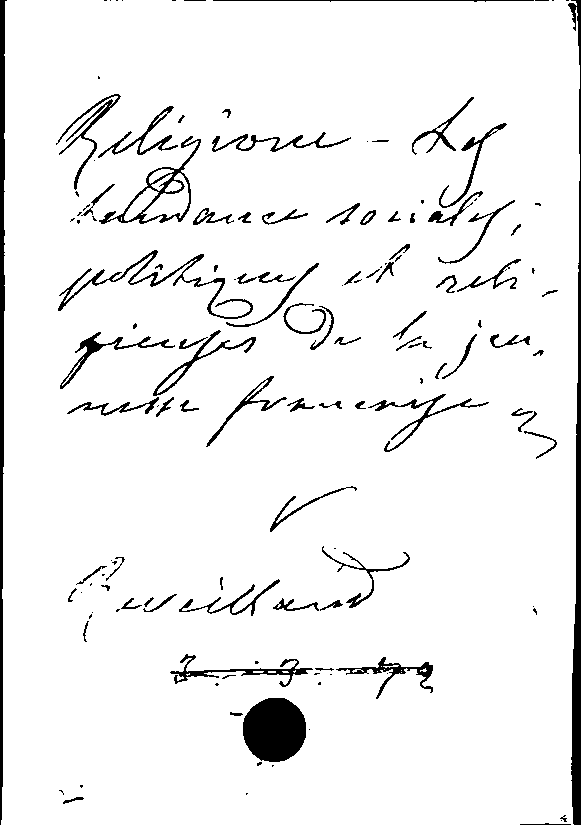 Religione - Les
tendances sociales,
politiques et reli-
gieuses de la jeu-
nesse française
V
Reveillaud
3.3.72